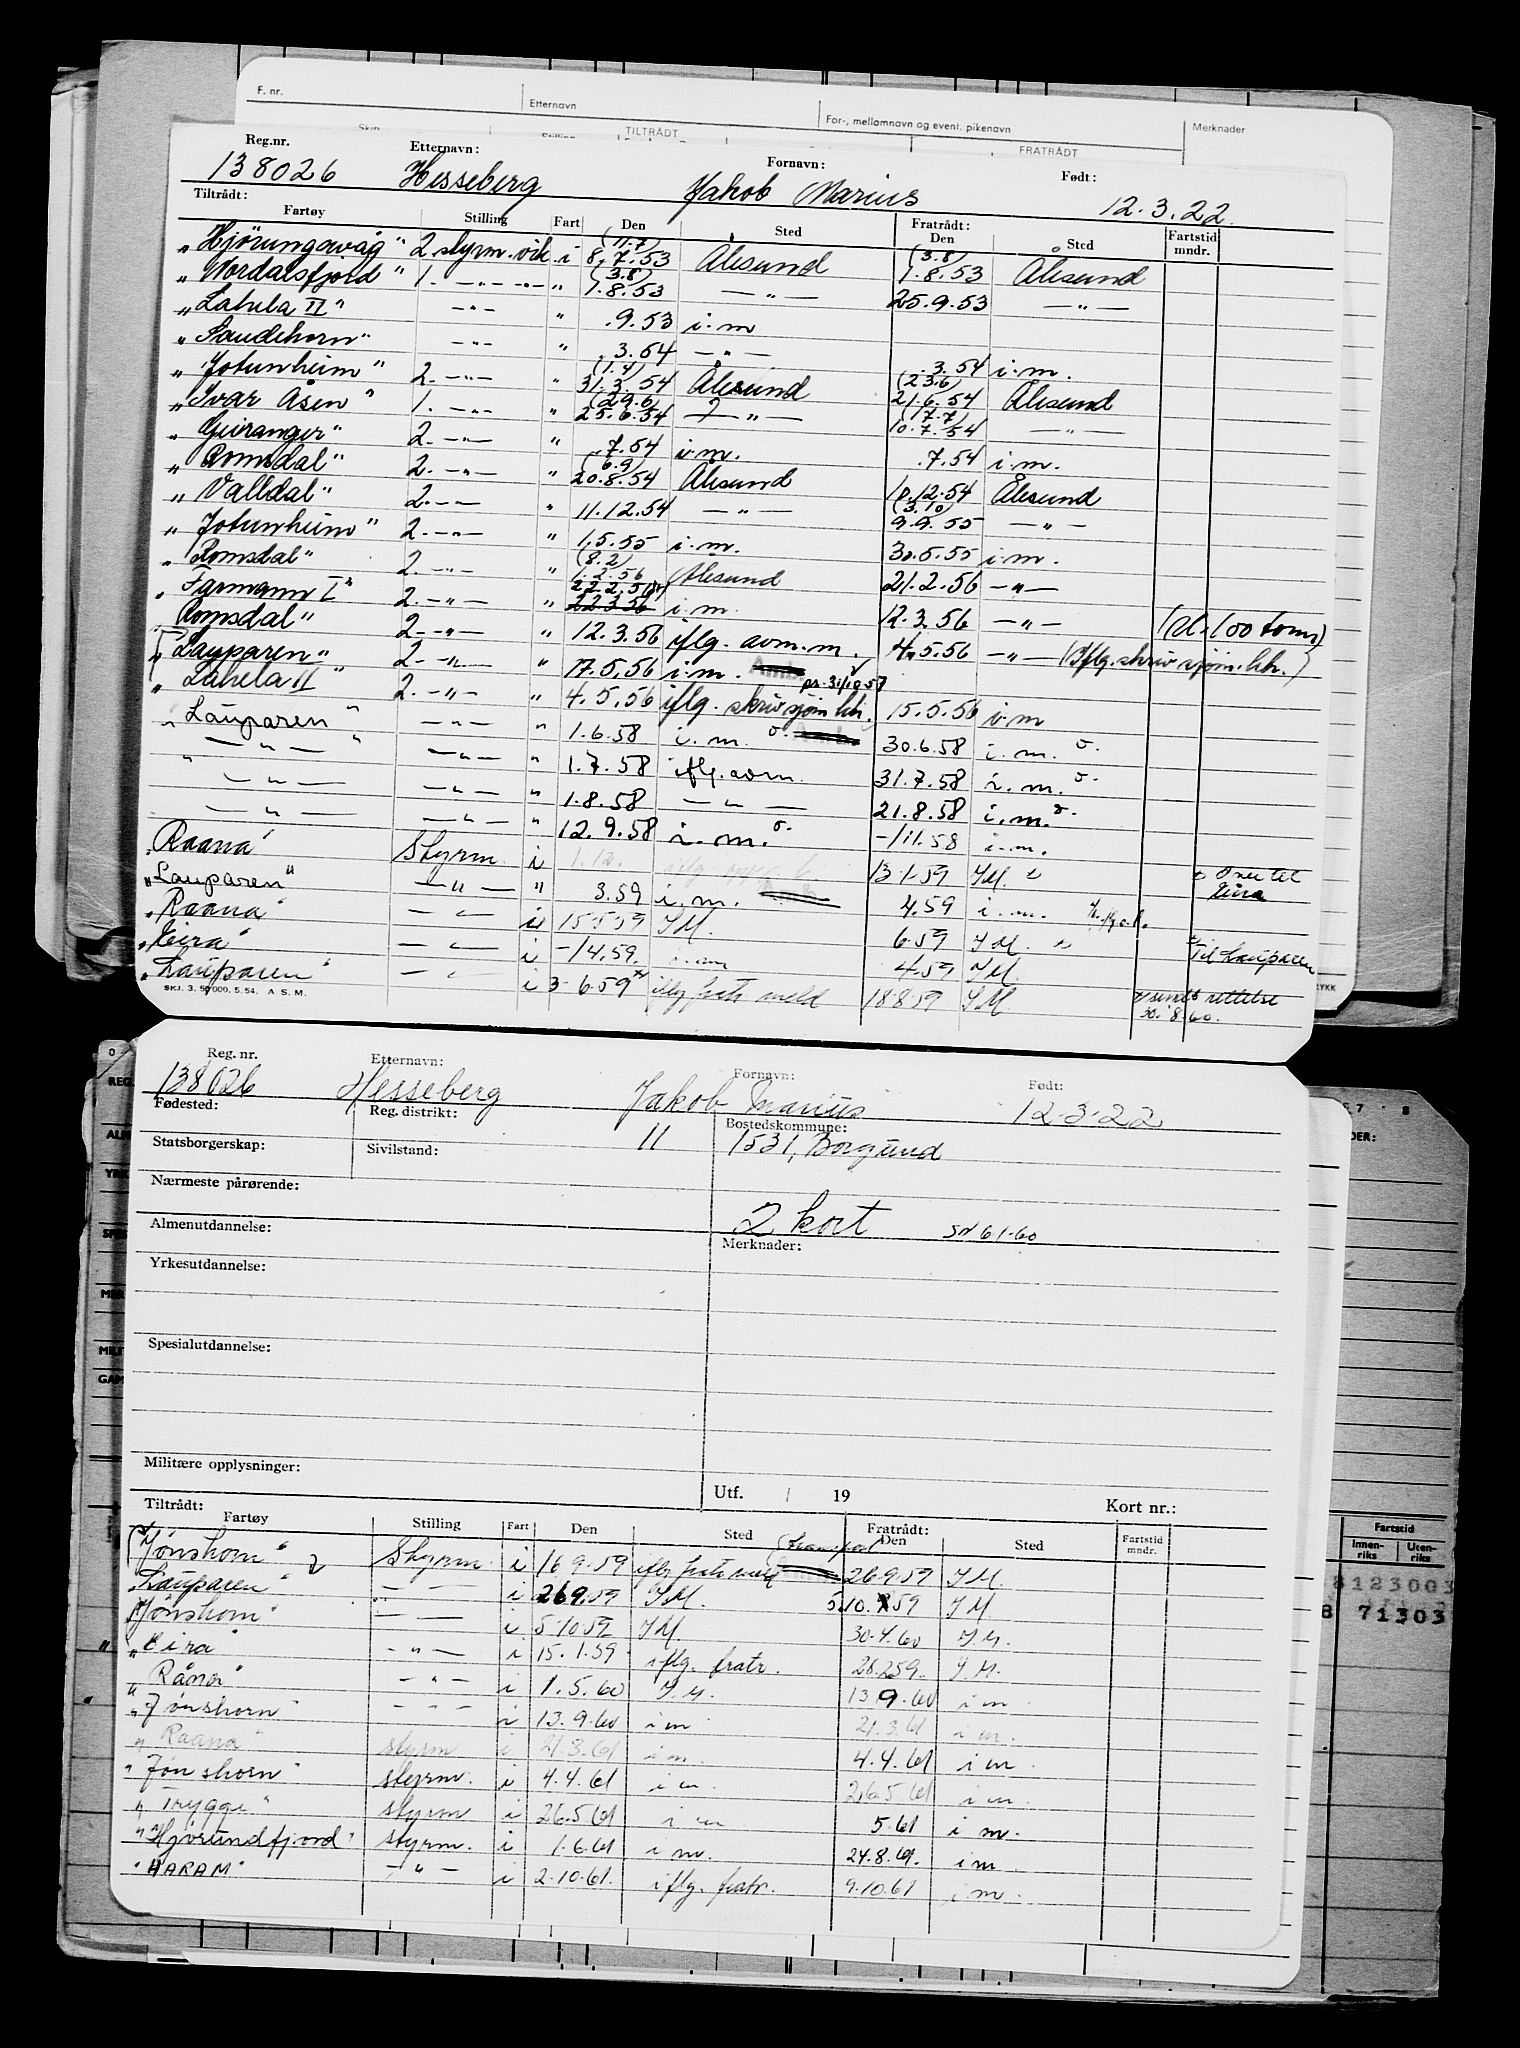 F. nr. Etternavn For-, mellomnavn og event. pikenavn Merknader
TILTRÅDT FRATRÅDT
Reg.nr. Etternavn: Fornavn: Født:
138026 Hesseberg Jakob Marius 12.3.22.
Tiltrådt: Fratrådt:
Fartøy Stilling Fart Den Sted Den Sted Fartstid mndr.
"Hjörungavåg" 2 styrm. vik. i (11.7) 8.7.53 Ålesund (3.8) 1.8.53 Ålesund
"Nordalsfjord" 1. —"— —"— " (3.8) 1.8.53 —"— 25.9.53 —"—
"Lahela II" —"— " .9.53 i.m
"Saudehorn" —"— " .3.54 —"— .3.54 i.m.
"Jotunheim" 2. —"— " (1.4) 31.3.54 Ålesund (23.6) 21.6.54 Ålesund
"Ivar Åsen" 1. —"— " (29.6) 25.6.54 —"— (17.7) 10.7.54 —"—
"Geiranger" 2. —"— " .7.54 i.m. .7.54 i.m.
"Romsdal" 2. —"— " (6.9) 20.8.54 Ålesund 10.12.54 Ålesund
"Valldal" 2. —"— " 11.12.54 —"— (3.10) 9.9.55 —"—
"Jotunheim" 2. —"— " 1.5.55 i.m. 30.5.55 i.m.
"Romsdal" 2. —"— " (8.2) 1.2.56 Ålesund 21.2.56 —"—
"Farmann I" 2. —"— " 22.2.56 22.3.56 i.m. 12.3.56 —"— (u. 100 tonn)
"Romsdal" 2. —"— " 12.3.56 iflg. avm.m. 4.5.56 —"— (Iflg. skriv sjøm.kh.)
"Lauparen" 2. —"— " 17.5.56 i.m. pr. 31/10 57
"Lahela II" 2. —"— " 4.5.56 iflg. skriv sjøm kh. 15.5.56 i.m
"Lauparen" —"— " 1.6.58 i.m. 30.6.58 i.m.
" —"— " —"— " 1.7.58 iflg. avm. 31.7.58 i.m.
—"— —"— " 1.8.58 —"— 21.8.58 i.m.
—"— —"— " 12.9.58 i.m. -/11.58 i.m.
"Raana" Styrm. i 1.12. 13 1-59 IM.
"Lauparen" —"— " 3.59 i.m. 4.59 i.m.
"Raana" —"— i 15559 IM. 6-59 IM. Til Lauparen
"Eira" —"— i -/4.59. i.m 4-59 IM.
"Lauparen" —"— i 3-6.59 iflg fratr meld 18859 IM sendt rettelse 30.8.60.
SKJ. 3. 50 000. 5.54. A.S.M.
Reg. nr. Etternavn: Fornavn: Født:
138026 Hesseberg Jakob Marius 12-3-22
Fødested: Reg. distrikt: 11 Bostedskommune:
Statsborgerskap: Sivilstand: 1531, Borgund
Nærmeste pårørende:
Almenutdannelse: 2 kort
Merknader:
Yrkesutdannelse:
Spesialutdannelse:
Militære opplysninger:
Utf. / 19 Kort nr.:
Tiltrådt: Fratrådt:
Fartøy Stilling Fart Den Sted Den Sted Fartstid mndr.
"Jønshorn" Styrm. i 16 9-59 iflg fratr meld 26959 IM.
"Lauparen" —"— i 26959 IM. 510.59 IM
"Jønshorn" —"— i 5-1059 IM. 30-4.60 IM.
"Eira" —"— i 15.1.59 iflg. fratr. 28259. IM.
"Råna" —"— i 1.5.60 IM. 13 9.60 i m
"Jønshorn" —"— i 13.9.60 i m 21.3.61 i m.
"Raana" styrm i 21.3.61 i m. 4.4.61 i m
"Jønshorn" styrm. i 4.4.61 i m. 26.5.61 i m.
"Trygge" styrm i 26.5.61 i m 5.61 i m.
"Hjørundfjord" styrm. i 1.6.61 i m. 24.8.61. i m
"HARAM" —"— i 2.10.61. iflg. fratr. 9.10.61 i m.
Fartstid
Innenriks Utenriks
8123003
8 71303